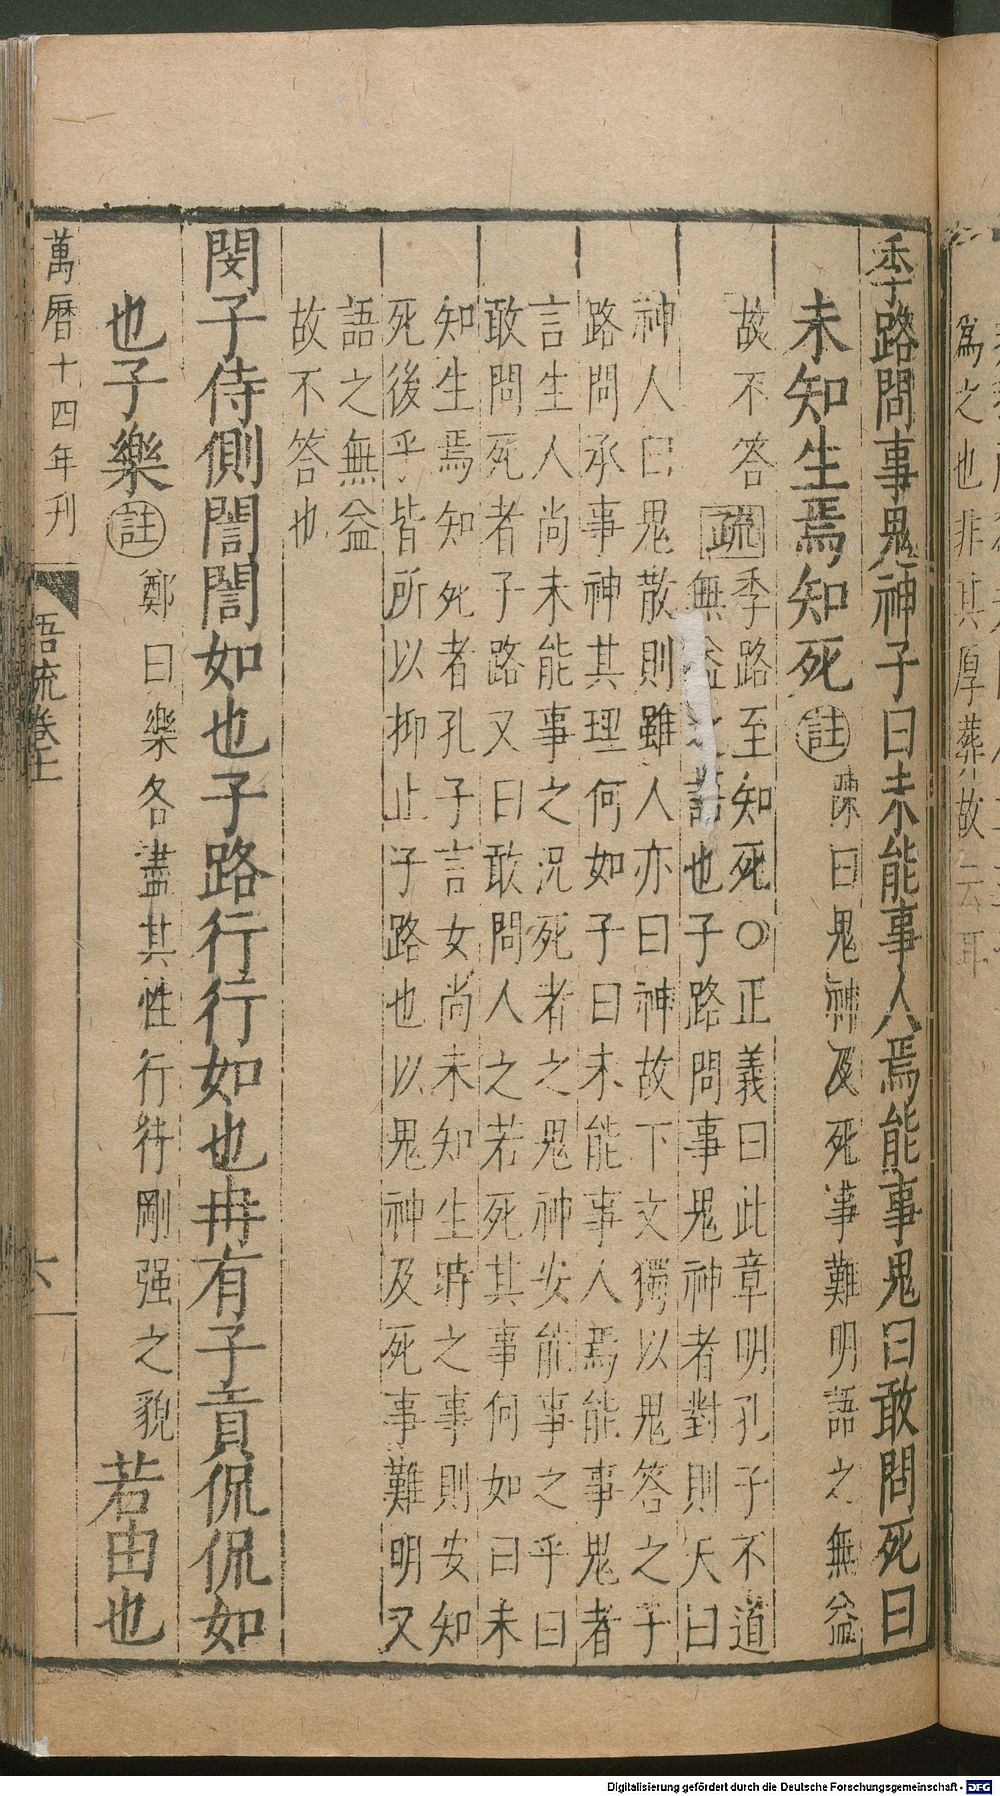 季路問事鬼神子曰未能事人焉能事鬼曰敢問死曰
未知生焉知死
註
陳曰鬼神及死事難明語之無益
故不答
疏
季路至知死〇正義曰此章明孔子不道
無益之語也子路問事鬼神者對則天曰
神人曰鬼散則雖人亦曰神故下文獨以鬼答之子
路問承事神其理何如子曰未能事人焉能事鬼者
言生人尚未能事之況死者之鬼神安能事之乎曰
敢問死者子路又曰敢問人之若死其事何如曰未
知生焉知死者孔子言女尚未知生時之事則安知
死後乎皆所以抑止子路也以鬼神及死事難明又
語之無益
故不答也
閔子侍側誾誾如也子路行行如也冉有子貢侃侃如
也子樂
註
鄭曰樂各盡其性
行行剛强之貌
若由也
萬曆十四年刊
語疏卷十一
六
為之也非其厚葬故云耳
Digitalisierung gefördert durch die Deutsche Forschungsgemeinschaft - DFG